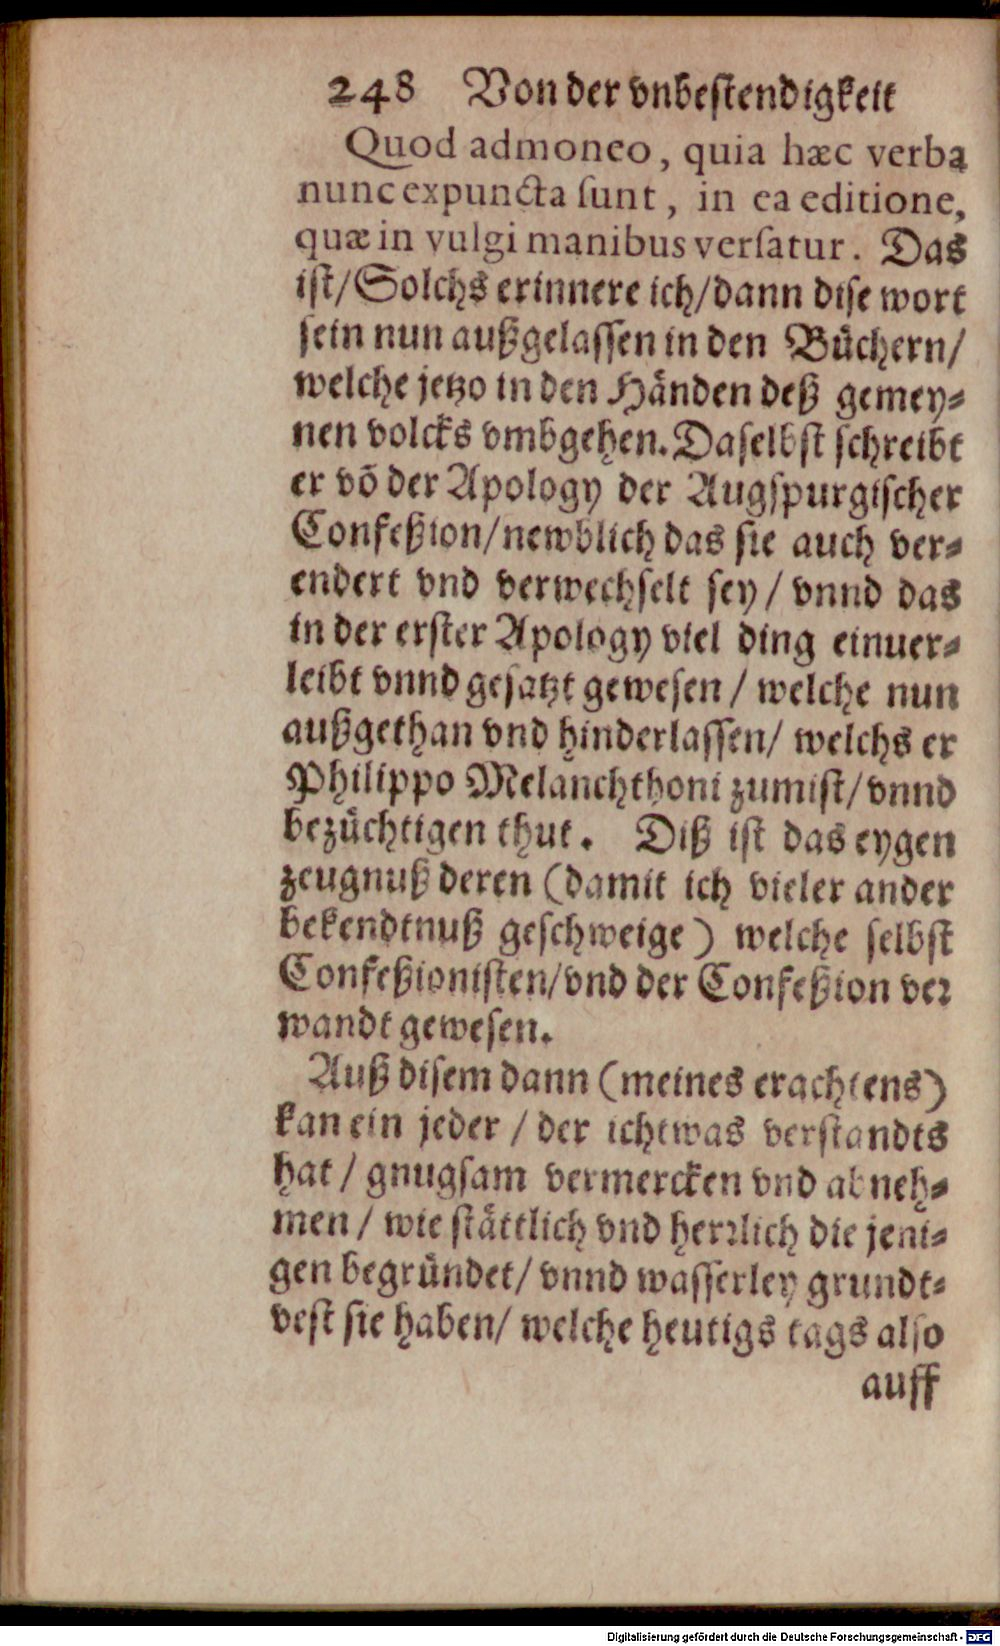 248 Von der vnbestendigkeit
Quod admoneo, quia hæc verba
nunc expuncta ſunt, in ea editione,
quæ in vulgi manibus verſatur. Das
iſt/Solchs erinnere ich/dann diſe wort
ſein nun außgelaſſen in den Bůchern/
welche jetzo in den Händen deß gemey⸗
nen volcks vmbgehen. Daſelbſt ſchreibt
er võ der Apology der Augſpurgiſcher
Confeßion/newblich das ſie auch ver⸗
endert vnd verwechſelt ſey/ vnnd das
in der erſter Apology viel ding einuer⸗
leibt vnnd geſatzt geweſen / welche nun
außgethan vnd hinderlaſſen/ welchs er
Philippo Melanchthoni zumiſt/ vnnd
bezůchtigen thut. Diß iſt das eygen
zeugnuß deren (damit ich vieler ander
bekendtnuß geſchweige) welche ſelbſt
Confeßioniſten/vnd der Confeßion ver
wandt geweſen.
Auß diſem dann (meines erachtens)
kan ein jeder / der ichtwas verſtandts
hat / gnugſam vermercken vnd abneh⸗
men / wie ſtättlich vnd herꝛlich die jeni⸗
gen begründet/ vnnd waſſerley grundt⸗
veſt ſie haben/ welche heutigs tags alſo
auff
Digitalisierung gefördert durch die Deutsche Forschungsgemeinschaft - DFG